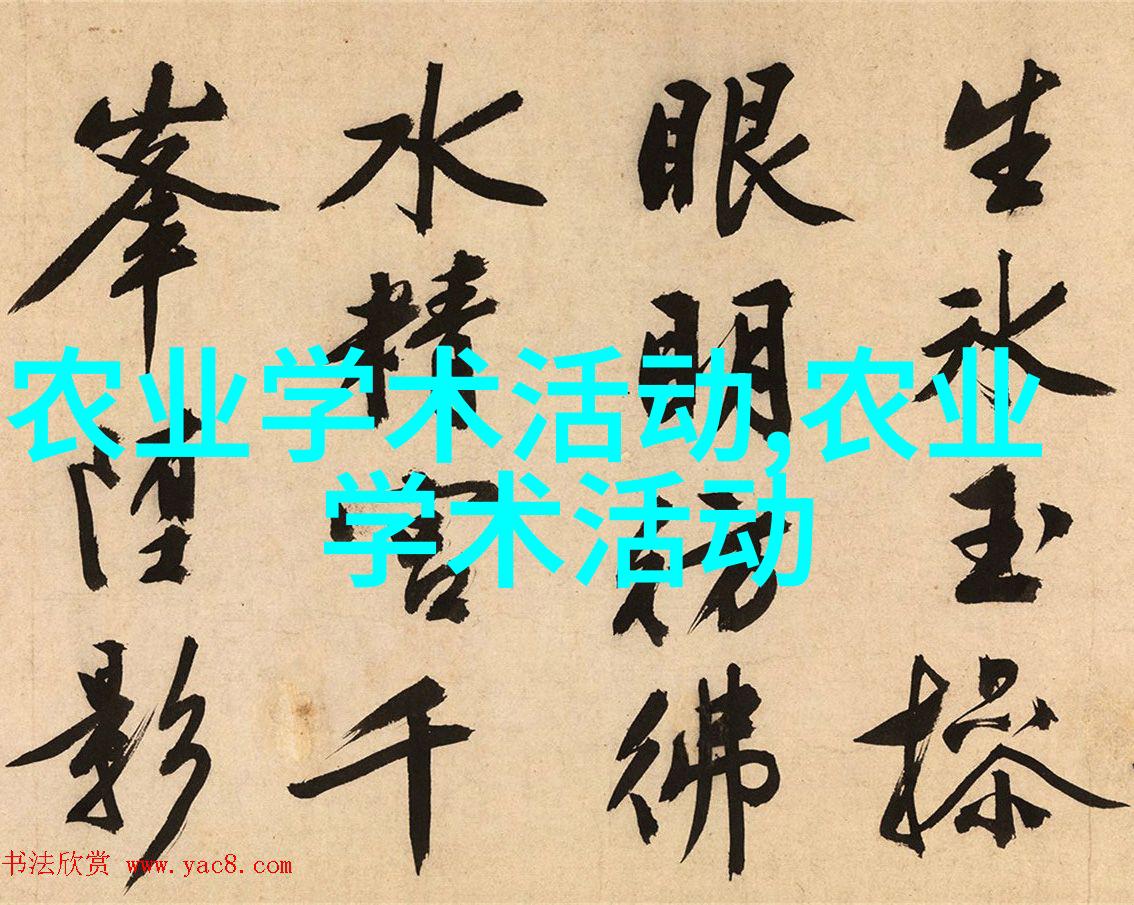 农业学术活动,农业
学术活动
生氷玉操
眼明彷彿
水精宮千
峯堕影
书法欣赏 www.yac8.com